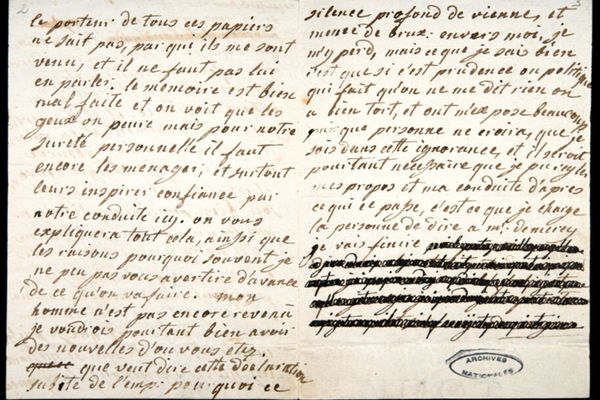 2
le porteur de tous ces papiers
ne sait pas, par qui, ils me sont
venu, et il ne faut pas lui
en parler. le memoire est bien
mal faite et on voit que les
geux on peure mais pour notre
sureté personnelle il faut
encore les menager, et surtout
leurs inspirer confiance par
notre conduite icy. on vous
expliquera tout cela, ainsi que
les raisons pourquoi souvent je
ne peu pas vous avertire d'avance
de ce qu'on va faire. mon
homme n'est pas encore revenu
je voudrois pourtant bien avoir
des nouvelles d'ou vous etez.
que veut dire cette declaration
subite de l'emp: pourquoi ce
3
silence profond de vienne, et
meme de brux: envers moi, je
m'y perd, mais ce que je sais bien
c'est que si c'est prudence ou politique
qui fait qu'on ne me dit rien on
a bien tort, et ont m'expose beaucoup
que personne ne croira, que je
sois dans cette ignorance, et il seroit
pourtant necessaire que je puisse regler
mes propos et ma conduite d'apres
ce qui ce passe, c'est ce que je charge
la personne de dire a mr. demercy
je vais finire
ARCHIVES
NATIONALES